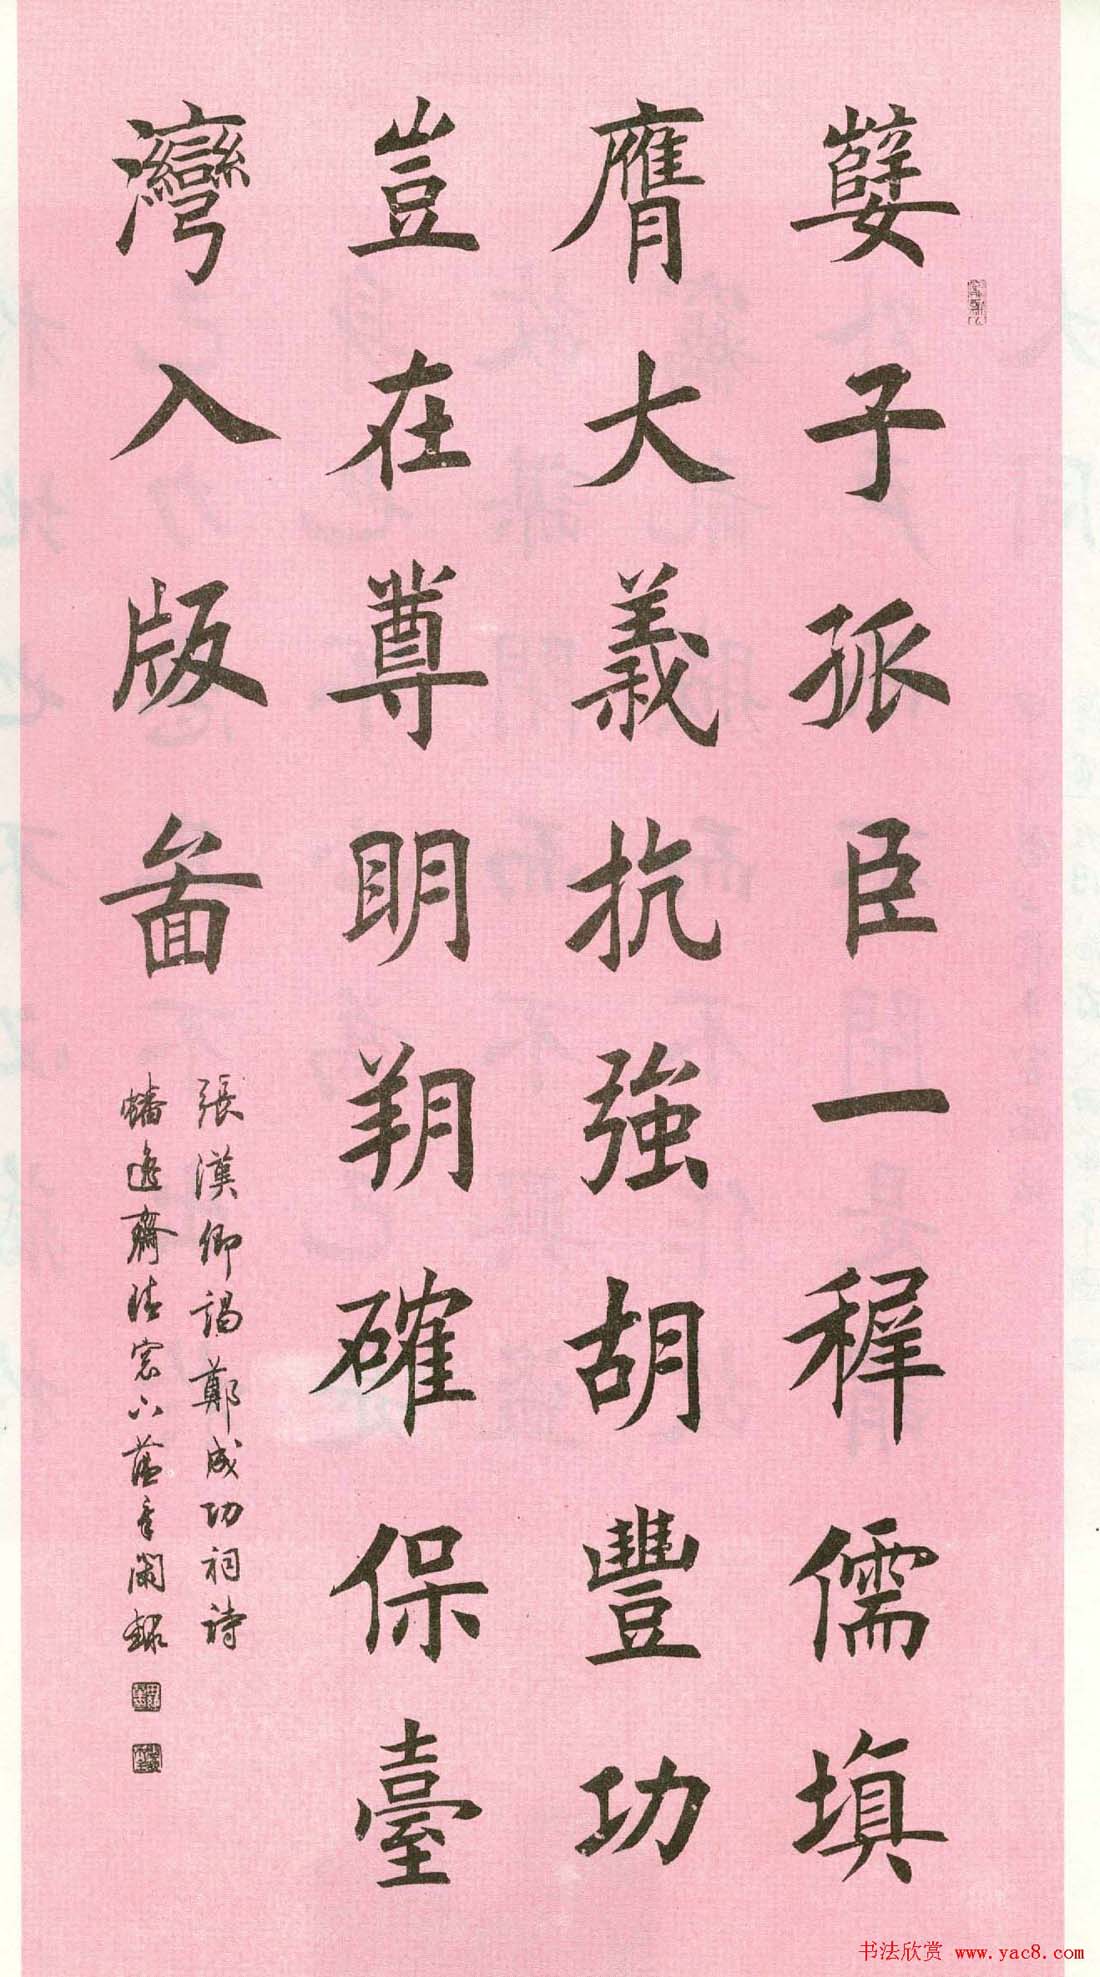 孽子孤臣一稺儒填
膺大義抗強胡豐功
豈在尊明朔確保臺
灣入版圖
張漢卿謁鄭成功祠詩
蟠遠齋
書法欣赏 www.yac8.com